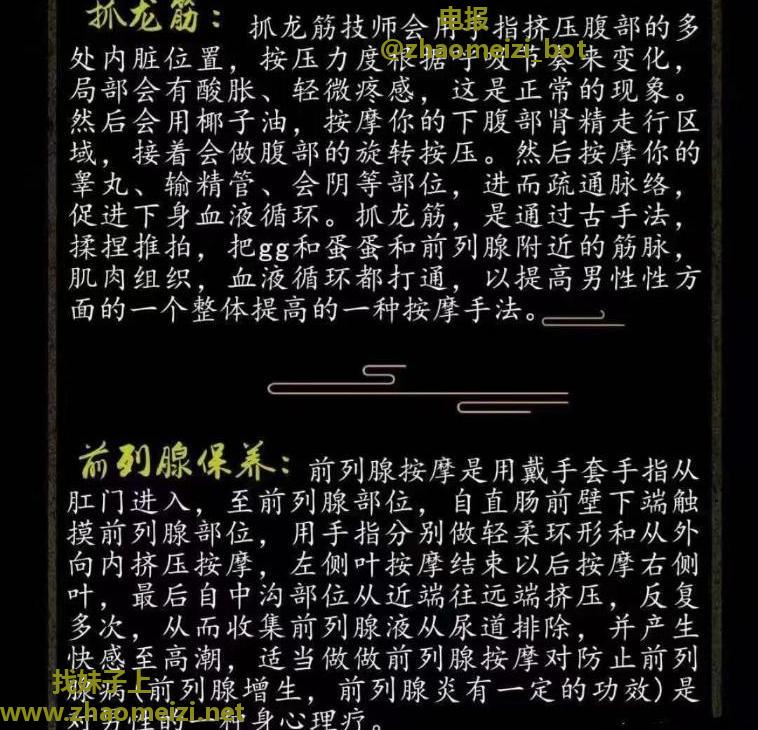 抓龙筋：抓龙筋技师会用手指挤压腹部的多
电报
@zhaomeizi_bot
处内脏位置，按压力度根据呼吸节奏来变化，
局部会有酸胀、轻微疼感，这是正常的现象。
然后会用椰子油，按摩你的下腹部肾精走行区
域，接着会做腹部的旋转按压。然后按摩你的
睾丸、输精管、会阴等部位，进而疏通脉络，
促进下身血液循环。抓龙筋，是通过古手法，
揉捏推拍，把gg和蛋蛋和前列腺附近的筋脉，
肌肉组织，血液循环都打通，以提高男性性方
面的一个整体提高的一种按摩手法。
前列腺保养：前列腺按摩是用戴手套手指从
肛门进入，至前列腺部位，自直肠前壁下端触
摸前列腺部位，用手指分别做轻柔环形和从外
向内挤压按摩，左侧叶按摩结束以后按摩右侧
叶，最后自中沟部位从近端往远端挤压，反复
多次，从而收集前列腺液从尿道排除，并产生
快感至高潮，适当做做前列腺按摩对防止前列
腺病(前列腺增生，前列腺炎有一定的功效)是
找妹子上
www.zhaomeizi.net
对男性的一种身心理疗。